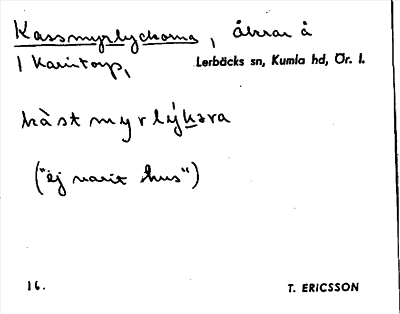 Kassmyrlyckorna, åkrar å
1 Karintorp,
Lerbäcks sn, Kumla hd, Ör. l.
kàstmyrlýkəra
("ej varit hus")
16.
T. ERICSSON